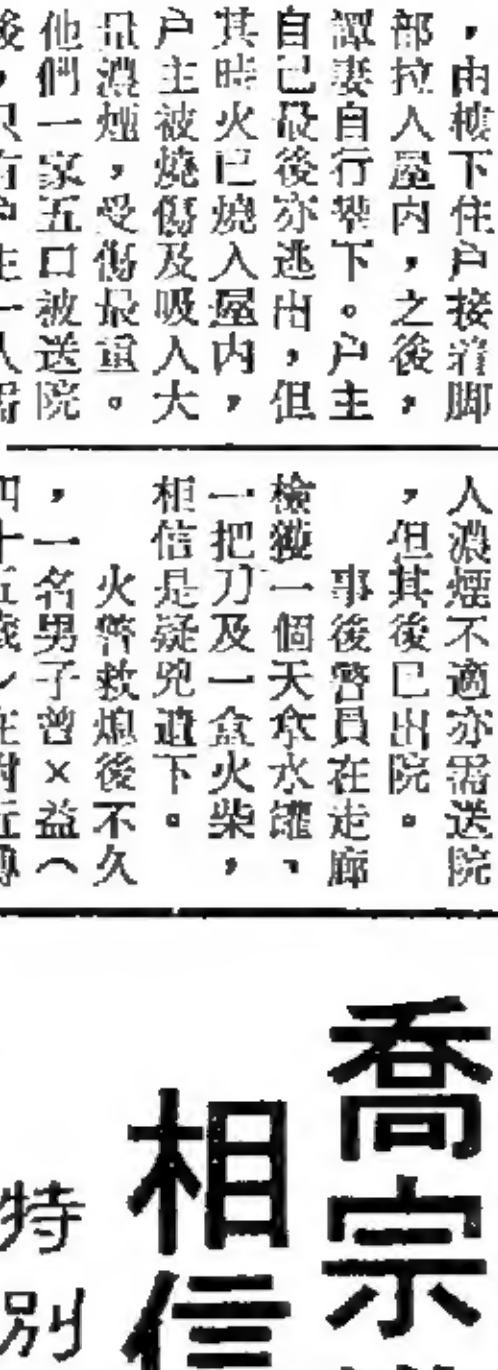 ，由樓下住戶接着脚
部拉入屋內，之後，
譚妻自行攀下。户主
自己最後亦逃出，但
其時火已燒入屋內，
户主被燒傷及吸入大
量濃煙，受傷最重。
他們一家五口被送院
後，只有户主一人需
人濃煙不適亦需送院
，但其後已出院。
事後警員在走廊
檢獲一個天拿水罐、
一把刀及一盒火柴，
相信是疑兇遺下。
火警救熄後不久
，一名男子曾×益（
四十五歲）在附近
喬宗
相信
特別